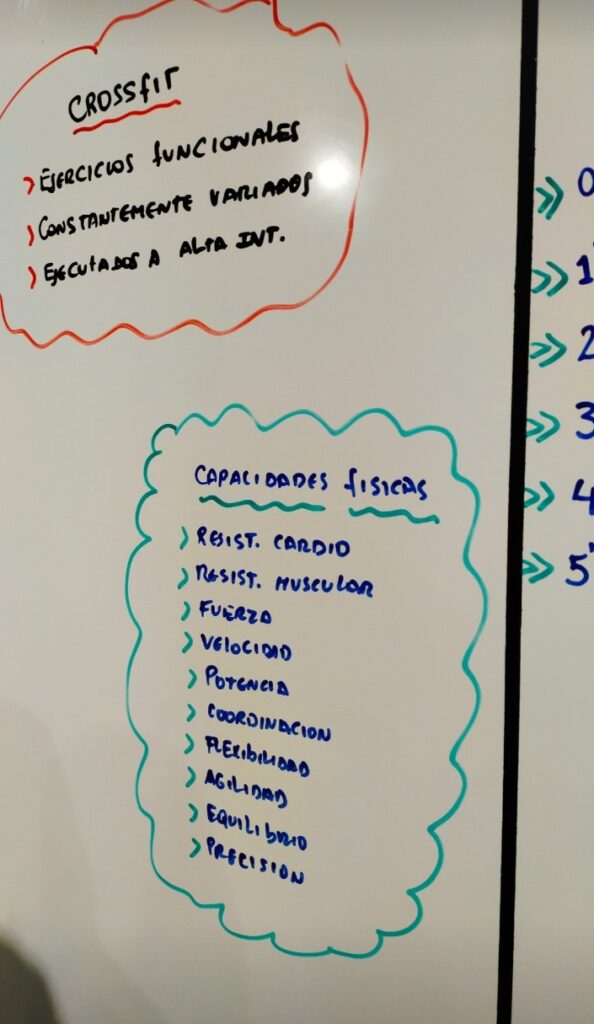 CROSSFIT
EJERCICIOS FUNCIONALES
CONSTANTEMENTE VARIADOS
EJECUTADOS A ALTA INT.
CAPACIDADES FISICAS
RESIST. CARDIO
RESIST. MUSCULAR
FUERZA
VELOCIDAD
POTENCIA
COORDINACION
FLEXIBILIDAD
AGILIDAD
EQUILIBRIO
PRECISION
0
1'
2
3
4
5'